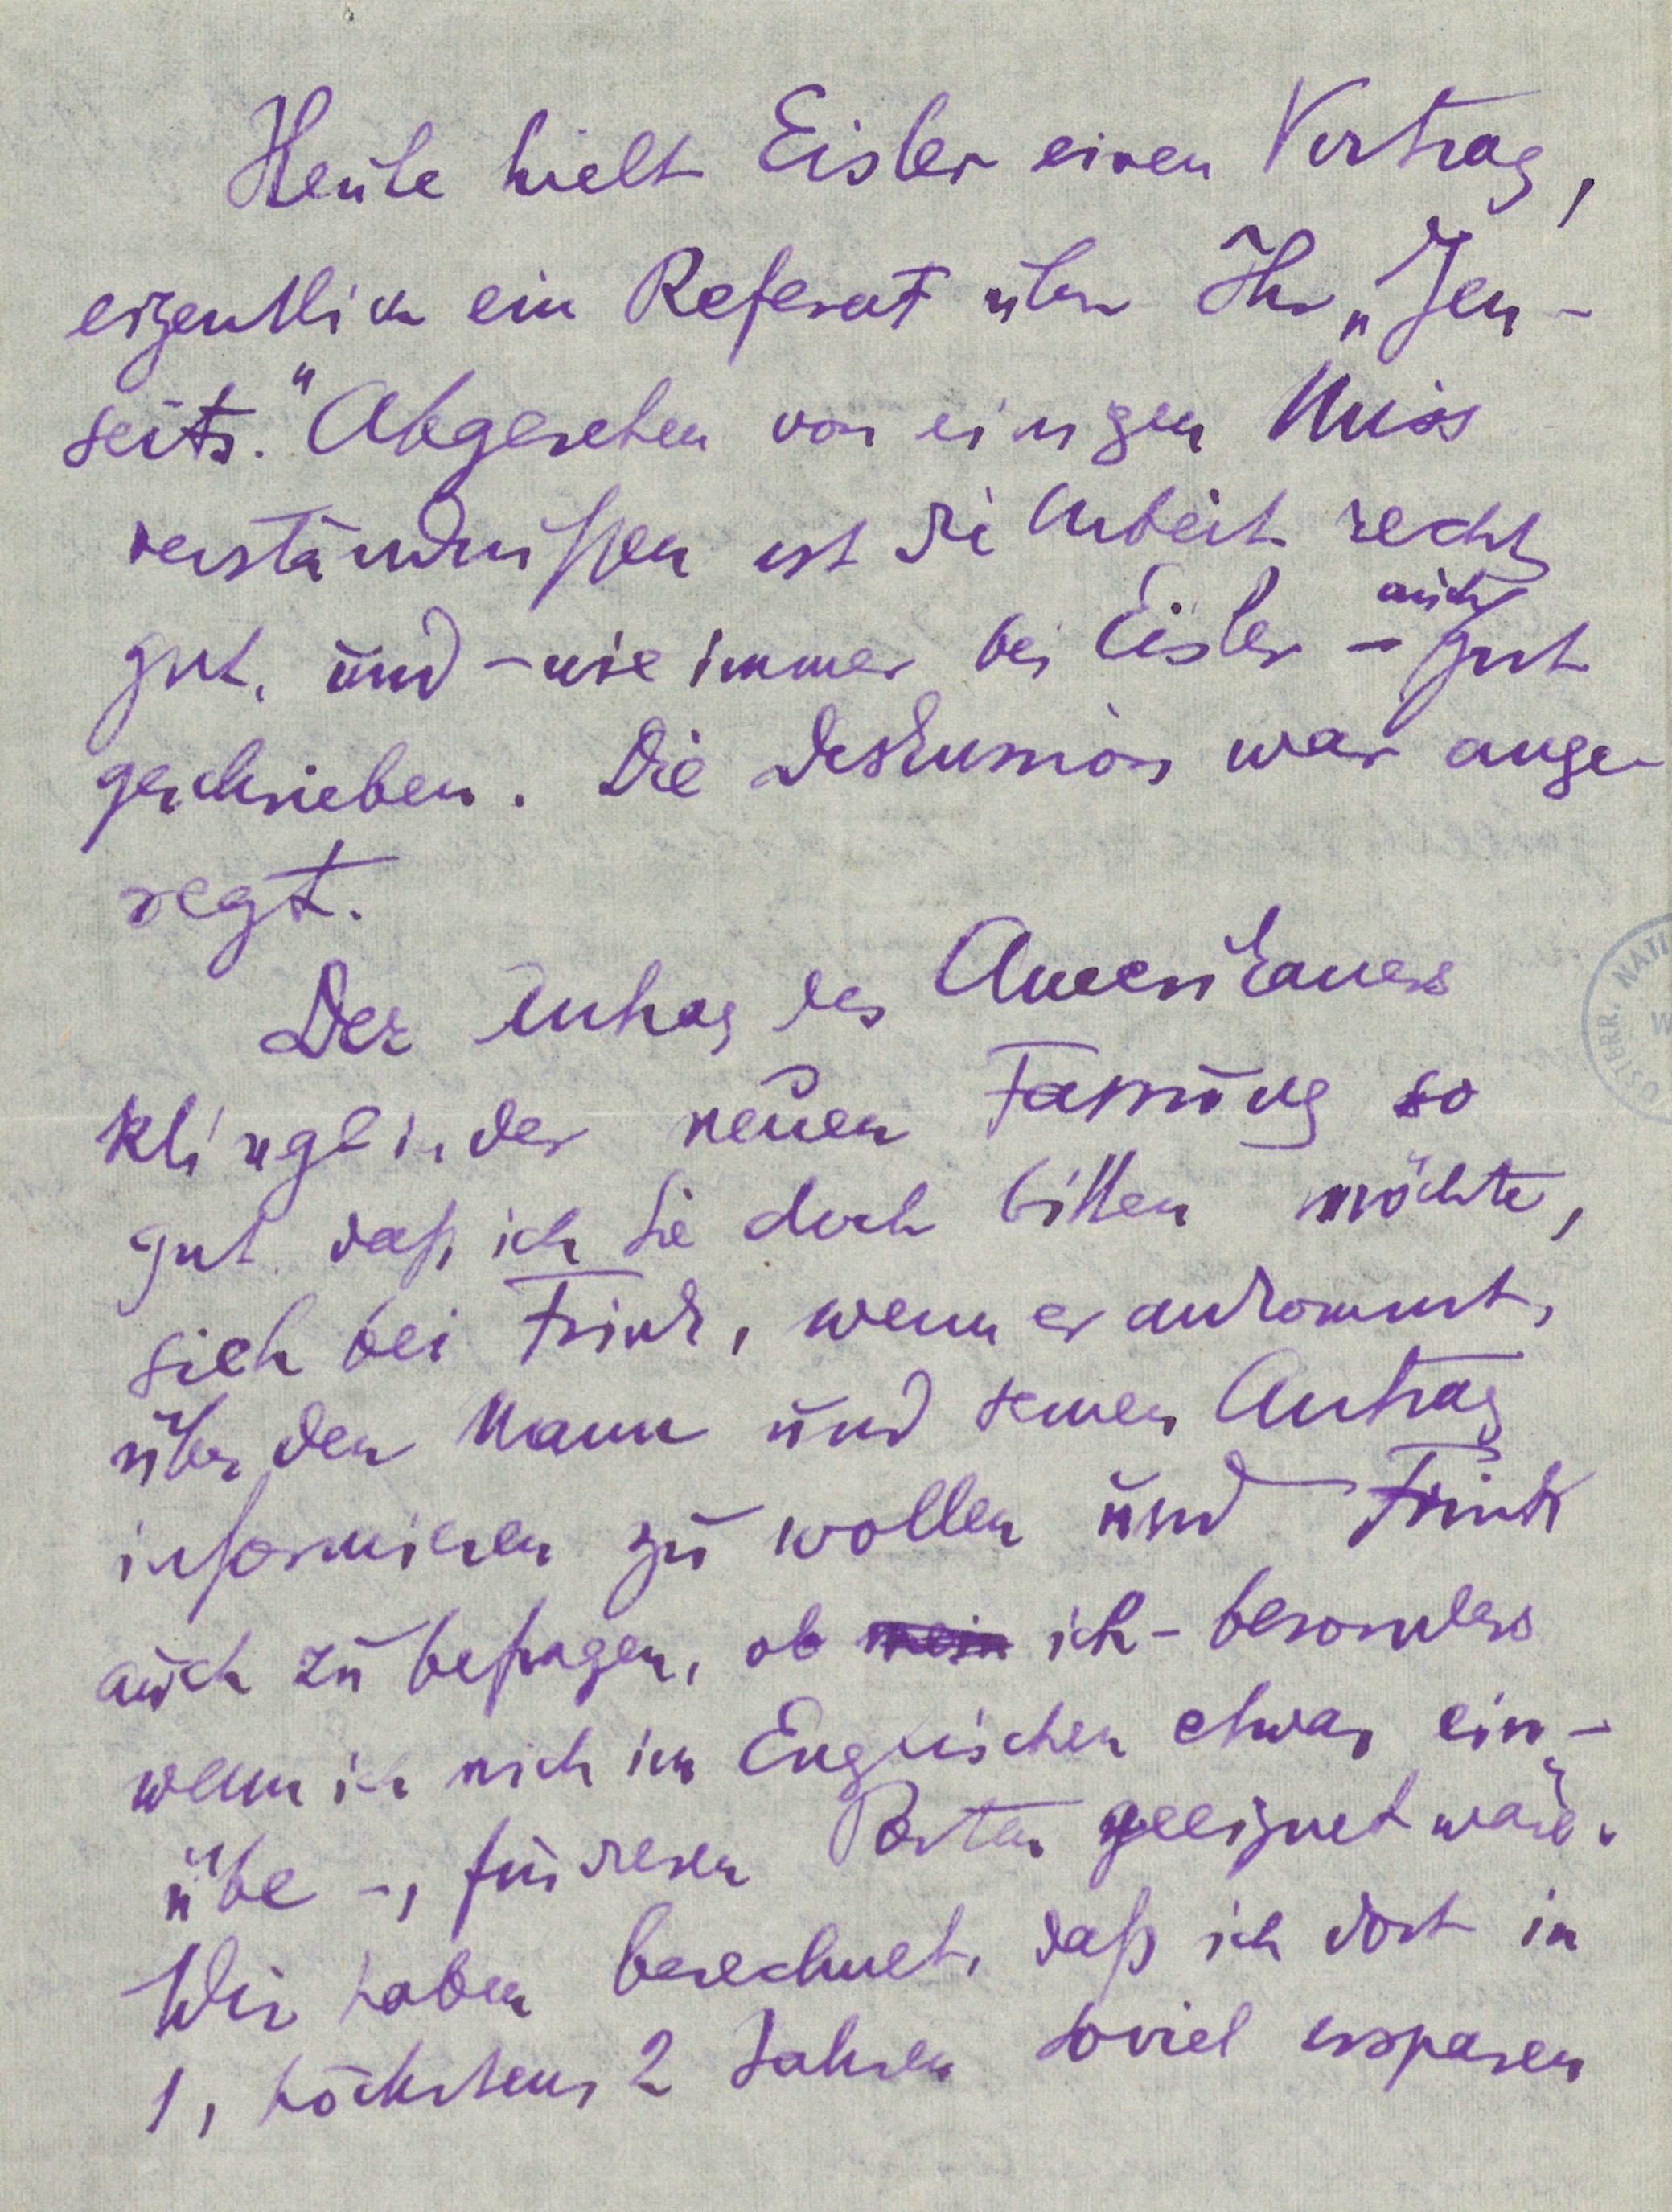 Heute hielt Eisler einen Vortrag,
eigentlich ein Referat über Ihr „Jen-
seits.“ Abgesehen von einigen Miss
verständnissen ist die Arbeit recht
gut, und – wie immer bei Eisler – auch gut
geschrieben. Die Diskussion war ange-
regt.
Der Antrag des Amerikaners
klingt in der neuen Fassung so
gut, daß ich Sie doch bitten möchte,
sich bei Frink, wenn er ankommt,
über den Mann und seinen Antrag
informieren zu wollen und Frink
auch zu befragen, ob mein ich – besonders
wenn ich mich im Englischen etwas ein-
übe –, für diesen Posten geeignet wäre.
Wir haben berechnet, daß ich dort in
1, höchstens 2 Jahren soviel ersparen
ÖSTERR. NATI
W